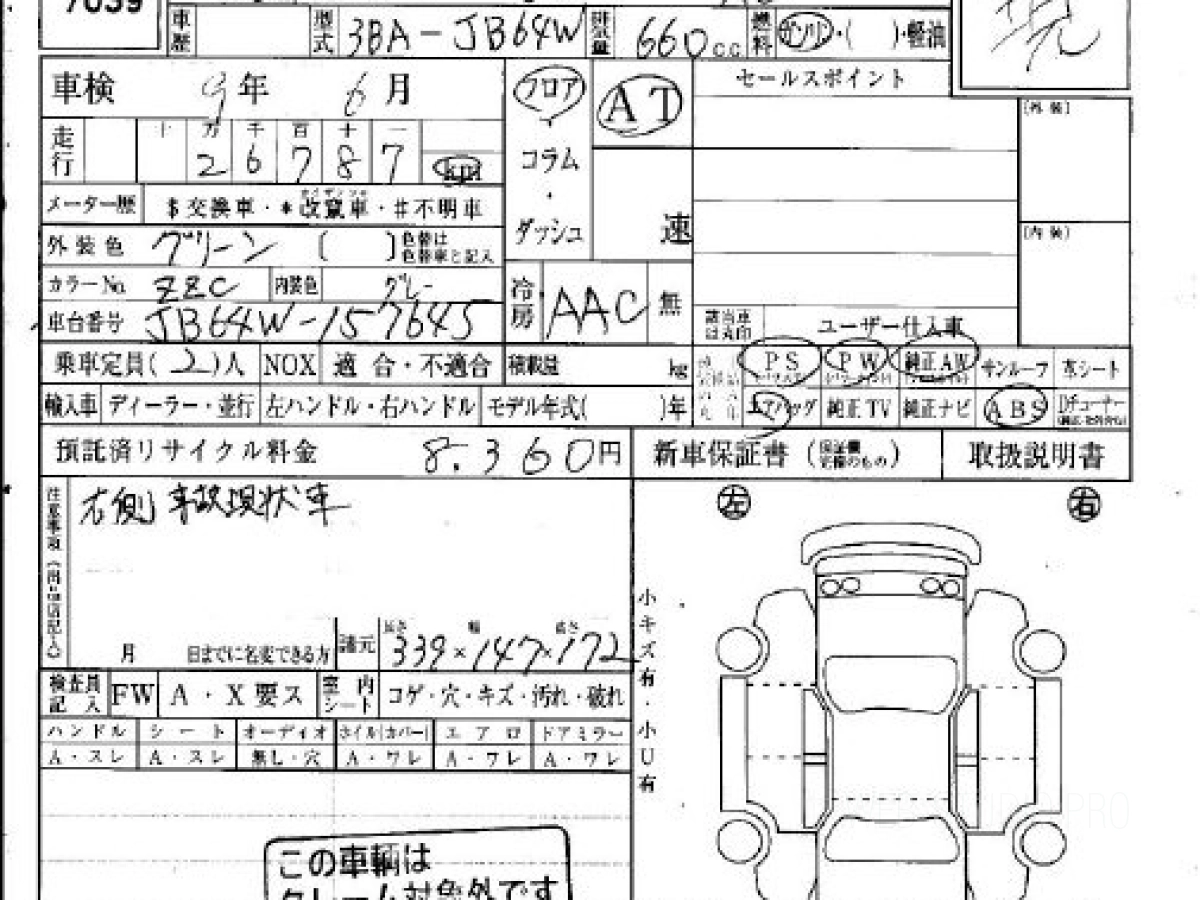 7039
車歴 型式 3BA-JB64W 排気量 660cc 燃料 ガソリン・( )・軽油
車検 9年 6月 フロア AT セールスポイント
[外装]
走行 十 万 千 百 十 一
2 6 7 8 7 km
コラム
メーター歴 $交換車・*改竄車・#不明車
ダッシュ 速
[内装]
外装色 グリーン ( ) 色替は色替車と記入
カラーNo. ZZC 内装色 グレー 冷房 AAC 無
車台番号 JB64W-157645 該当車は丸印 ユーザー仕入車
乗車定員(2)人 NOX 適合・不適合 積載量 kg PS PW 純正AW サンルーフ 革シート
輸入車 ディーラー・並行 左ハンドル・右ハンドル モデル年式( )年 エアバッグ 純正TV 純正ナビ ABS Dチューナー
預託済リサイクル料金 8,360円 新車保証書 (保証欄完備のもの) 取扱説明書
右側事故現状車
左 右
月 日までに名変できる方 諸元 長さ 339×幅 147×高さ 172
小キズ有・小U有
検査員記入 FW A・X要ス 室内シート コゲ・穴・キズ・汚れ・破れ
ハンドル シート オーディオ ホイル(カバー) エアロ ドアミラー
A・スレ A・スレ 無し・穴 A・ワレ A・ワレ A・ワレ
この車輌は
クレーム対象外です